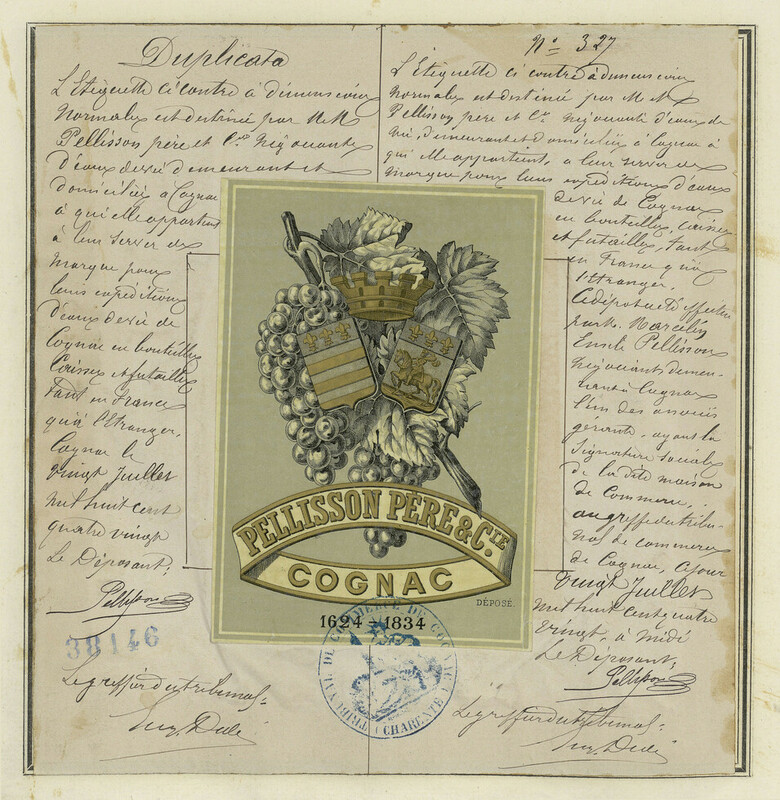 Duplicata
L'Etiquette ci contre à dimensions
normales est destinée par M.M.
Pellisson père et Cie Négociants
d'eaux de vie demeurant et
domiciliés à Cognac
à qui elle appartient
à leur servir de
marque pour
leurs expéditions
d'eaux de vie de
Cognac en bouteilles
Caisses et futailles
tant en France
qu'à l'Etranger.
Cognac le
vingt Juillet
mil huit cent
quatre vingt
Le Déposant,
Pellisson
38146
Le greffier du tribunal
No 327
L'Etiquette ci contre à dimensions
normales est destinée par M M
Pellisson père et Cie négociants d'eaux de
vie, demeurant et domiciliés à Cognac à
qui elle appartient, à leur servir de
marque pour leurs expéditions d'eaux
de vie de Cognac
en bouteilles, Caisses
et futailles, tant
en France qu'à
l'étranger.
Ce dépôt a été effectué
par M. Marcelin
Emile Pellisson
négociant demeu-
rant à Cognac
l'un des associés
gérants, ayant la
signature sociale
de la dite maison
de Commerce,
au greffe du tribu-
nal de commerce
de Cognac, ce jour
vingt Juillet
mil huit cent quatre
vingt, à midi
Le Déposant,
Pellisson
Le greffier du tribunal
PELLISSON PÈRE & CIE
COGNAC
DÉPOSÉ.
1624-1834
TRIBUNAL DE COMMERCE DE COGNAC
CHARENTE